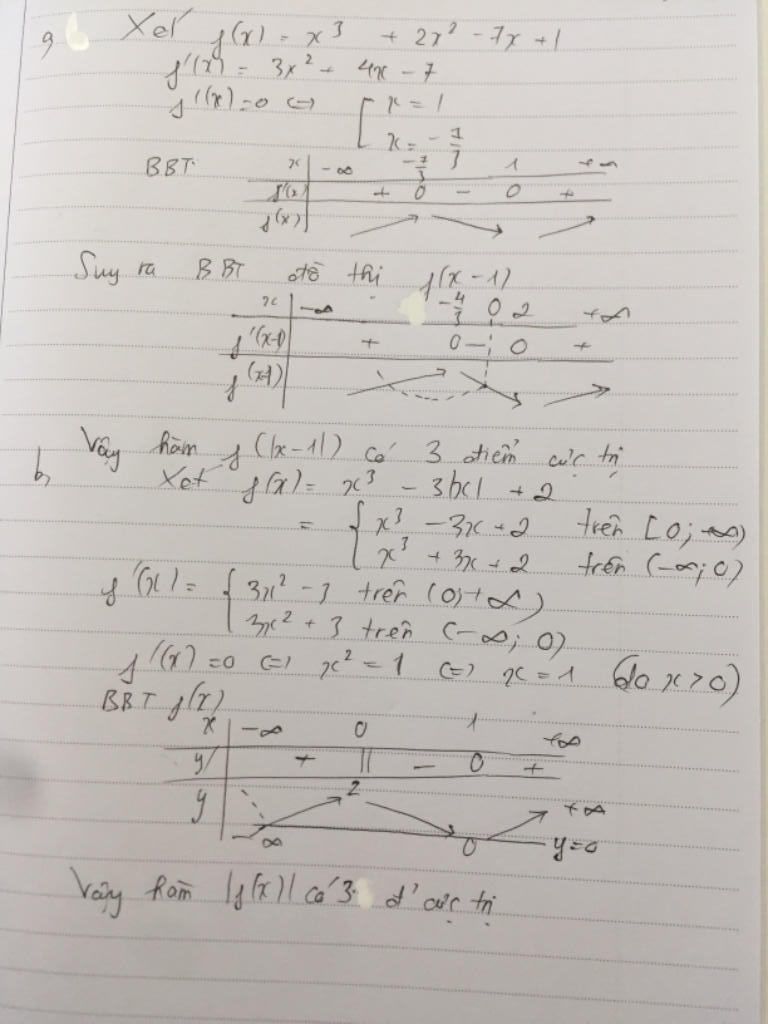 a, Xét f(x) = x³ + 2x² - 7x + 1
f'(x) = 3x² + 4x - 7
f'(x) = 0 <=> [ x = 1
x = -7/3
BBT x | -∞ -7/3 1 +∞
f'(x) | + 0 - 0 +
f(x)
Suy ra BBT đồ thị f(x-1)
x | -∞ -4/3 0 2 +∞
f'(x-1) | + 0 - 0 +
f(x-1)
Vậy hàm f(|x-1|) có 3 điểm cực trị
b, Xét f(x) = x³ - 3|x| + 2
= { x³ - 3x + 2 trên [0; +∞)
x³ + 3x + 2 trên (-∞; 0)
f'(x) = { 3x² - 3 trên (0; +∞)
3x² + 3 trên (-∞; 0)
f'(x) = 0 <=> x² = 1 <=> x = 1 (do x > 0)
BBT f(x)
x | -∞ 0 1 +∞
y' | + || - 0 +
y | -∞ 2 0 +∞ y=0
Vậy hàm |f(x)| có 3 đ' cực trị